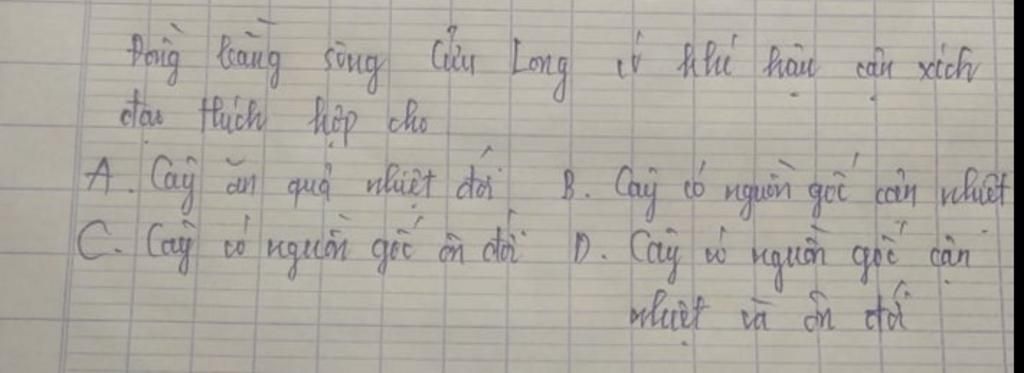 Đồng bằng sông Cửu Long có khí hậu cận xích
đạo thích hợp cho
A. Cây ăn quả nhiệt đới B. Cây có nguồn gốc cận nhiệt
C. Cây có nguồn gốc ôn đới D. Cây có nguồn gốc cận
nhiệt và ôn đới